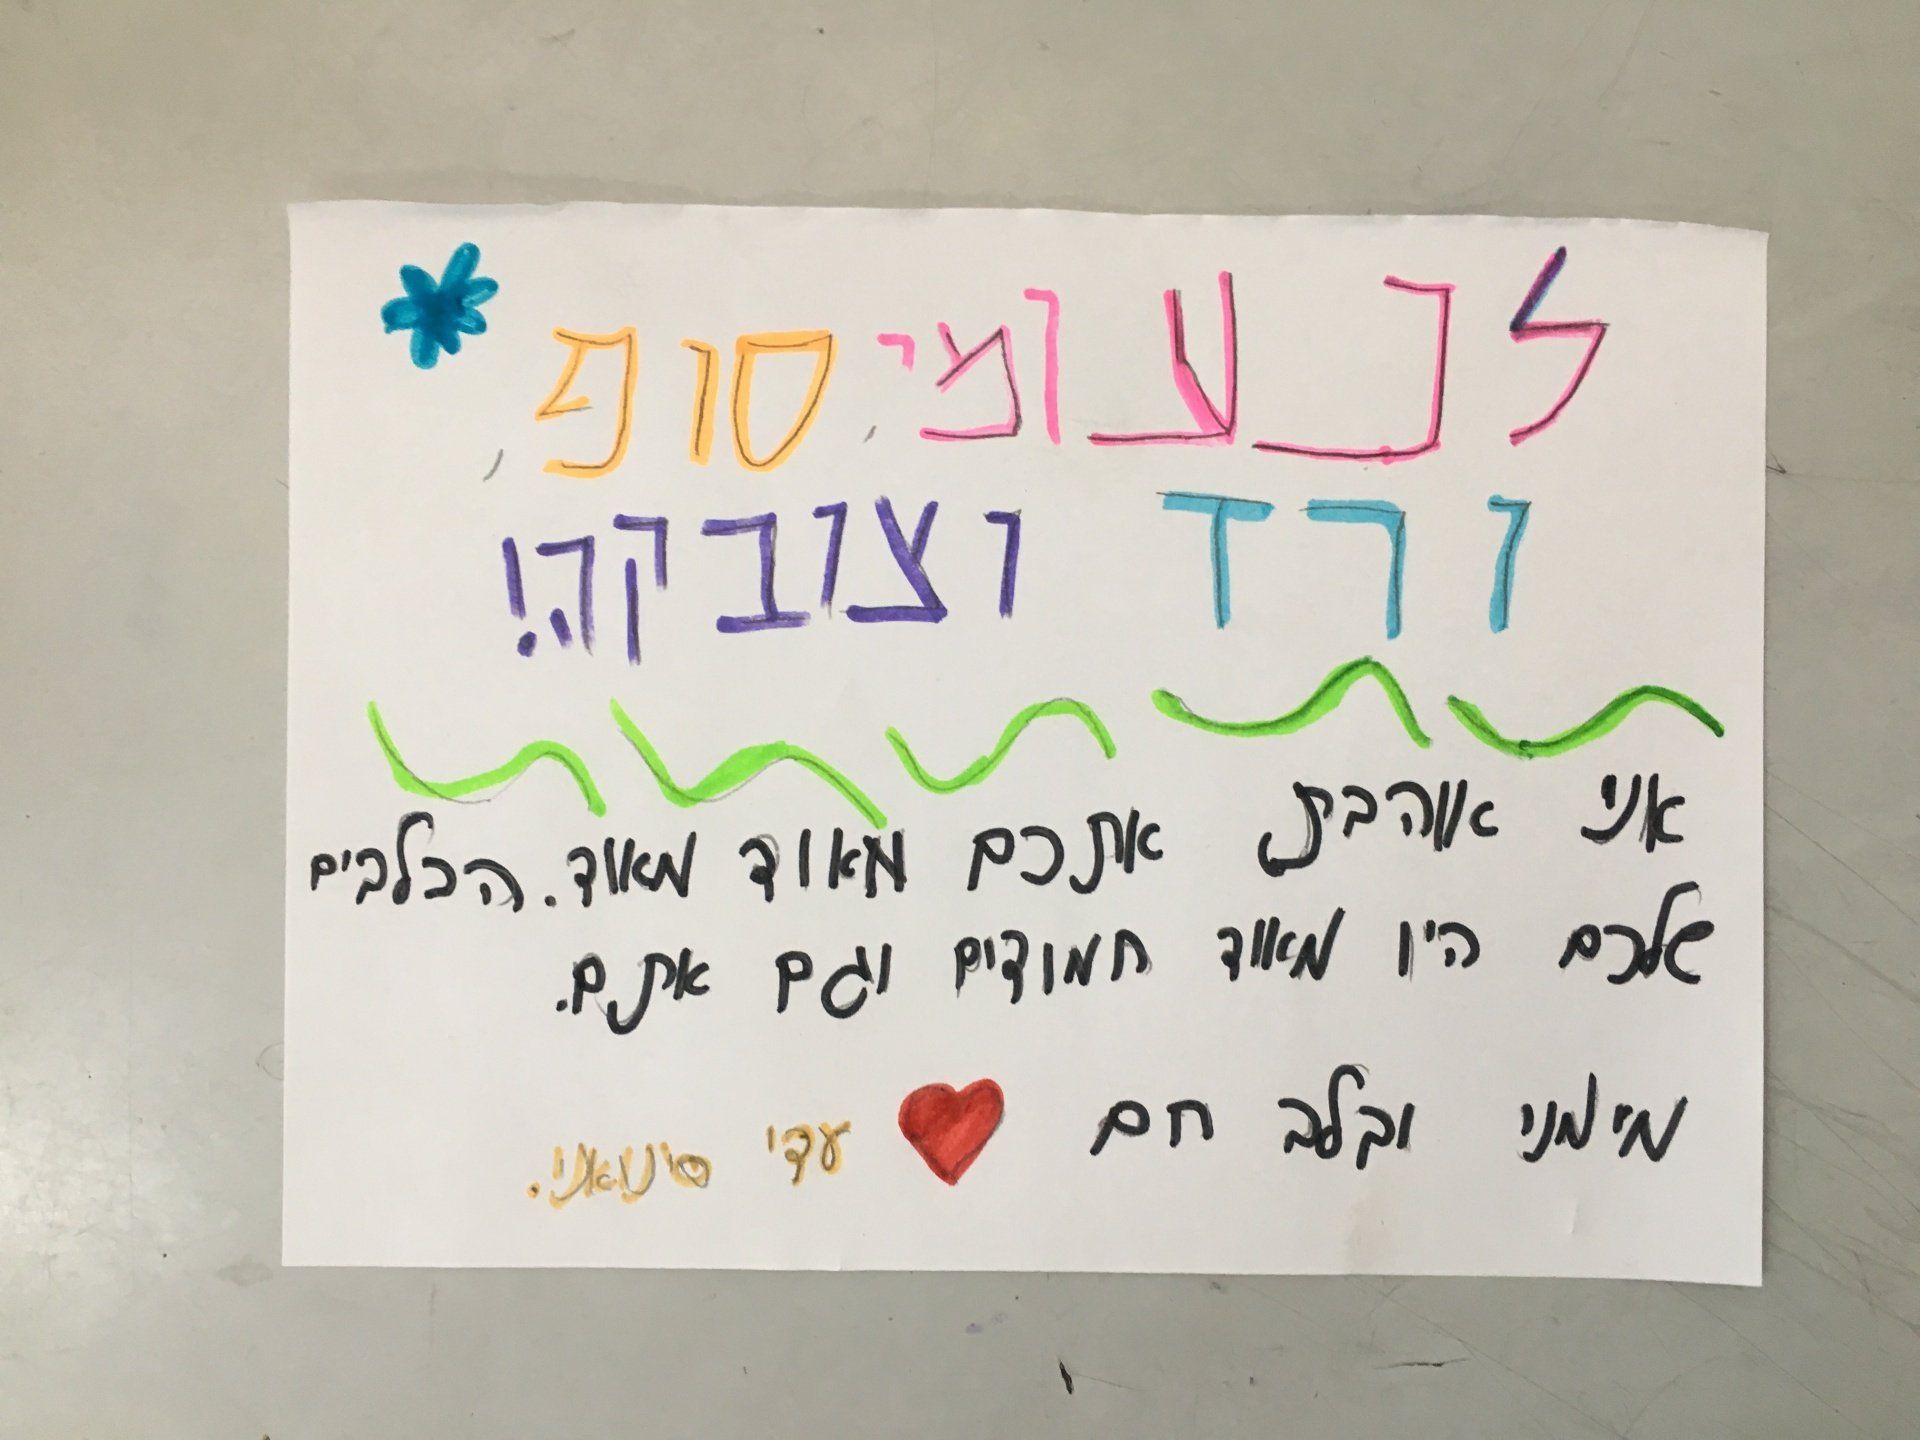 לנעומי, סופי,
ורד וצובקה!
אני אוהבת אתכם מאוד מאוד. הכלבים
שלכם היו מאוד חמודים וגם אתם.
ממני ובלב חם
עדי סינואני.